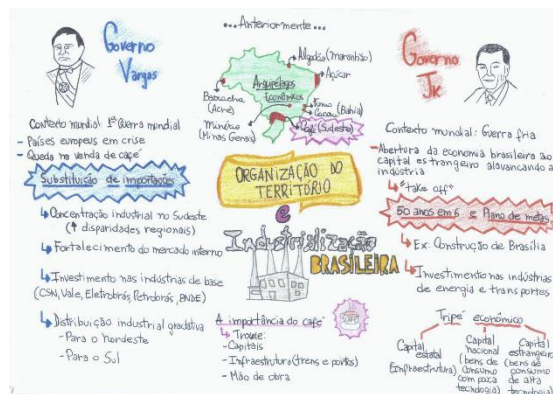 Governo
Vargas
Contexto mundial: 1ª Guerra mundial
- Países europeus em crise
- Queda na venda de café
Substituição de importações
Concentração industrial no Sudeste
(↑ disparidades regionais)
Fortalecimento do mercado interno
Investimento nas indústrias de base
(CSN, Vale, Eletrobrás, Petrobrás, BNDE)
Distribuição industrial gradativa
- Para o nordeste
- Para o Sul
...Anteriormente...
Algodão (Maranhão)
Açúcar
Arquipélagos
Econômicos
Borracha
(Acre)
Fumo
Cacau (Bahia)
Minérios
(Minas Gerais)
Café (Sudeste)
ORGANIZAÇÃO DO
TERRITÓRIO
e
Industrialização
BRASILEIRA
A importância do café
Trouxe:
- Capitais
- Infraestrutura (trens e portos)
- Mão de obra
Governo
JK
Contexto mundial: Guerra fria
- Abertura da economia brasileira ao
capital estrangeiro alavancando a
indústria
"take off"
50 anos em 5 e Plano de metas
Ex: Construção de Brasília
Investimento nas indústrias
de energia e transportes
Tripé econômico
Capital
estatal
(Infraestrutura)
Capital
nacional
(bens de
consumo
com pouca
tecnologia)
Capital
estrangeiro
(bens de
consumo
de alta
tecnologia)